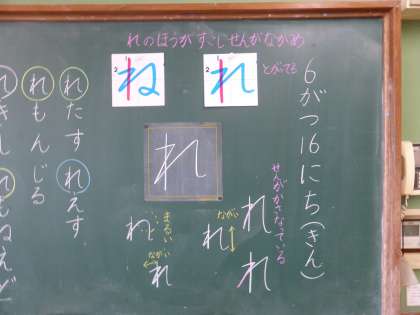 6がつ16にち(きん)
れのほうがすこしせんがながめ
1
2
ね
1
2
れ
とがってる
れ
せんがかさなっている
れ
れ
ながい
れ
まるい
れ
ながい
れ
れたす
れえす
れもんじる